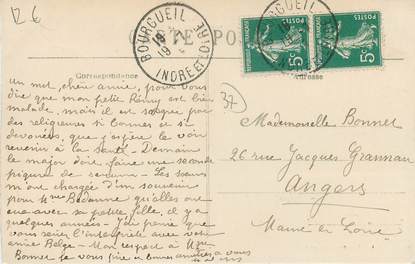 R 6
BOURGUEIL
INDRE ET LOIRE
BOURGUEIL
5c
5c
Correspondance
Adresse
37
Un mot, chère amie, pour vous
dire que mon petit Rémy est bien
malade, mais il est soigné par
des religieuses si bonnes et si
dévouées, que j'espère le voir
revenir à la santé - Demain
le major doit faire une seconde
piqure de Les sœurs
m'ont chargée d'un souvenir
pour qu'elles ont
eue avec sa petite fille, il y a
quelques années -
que vous
amie Belge - Mon respect à Mgr
Bonnet je vous amitiés à vous
Mademoiselle Bonnet
26 rue Jacques Granneau
Angers
Maine et Loire